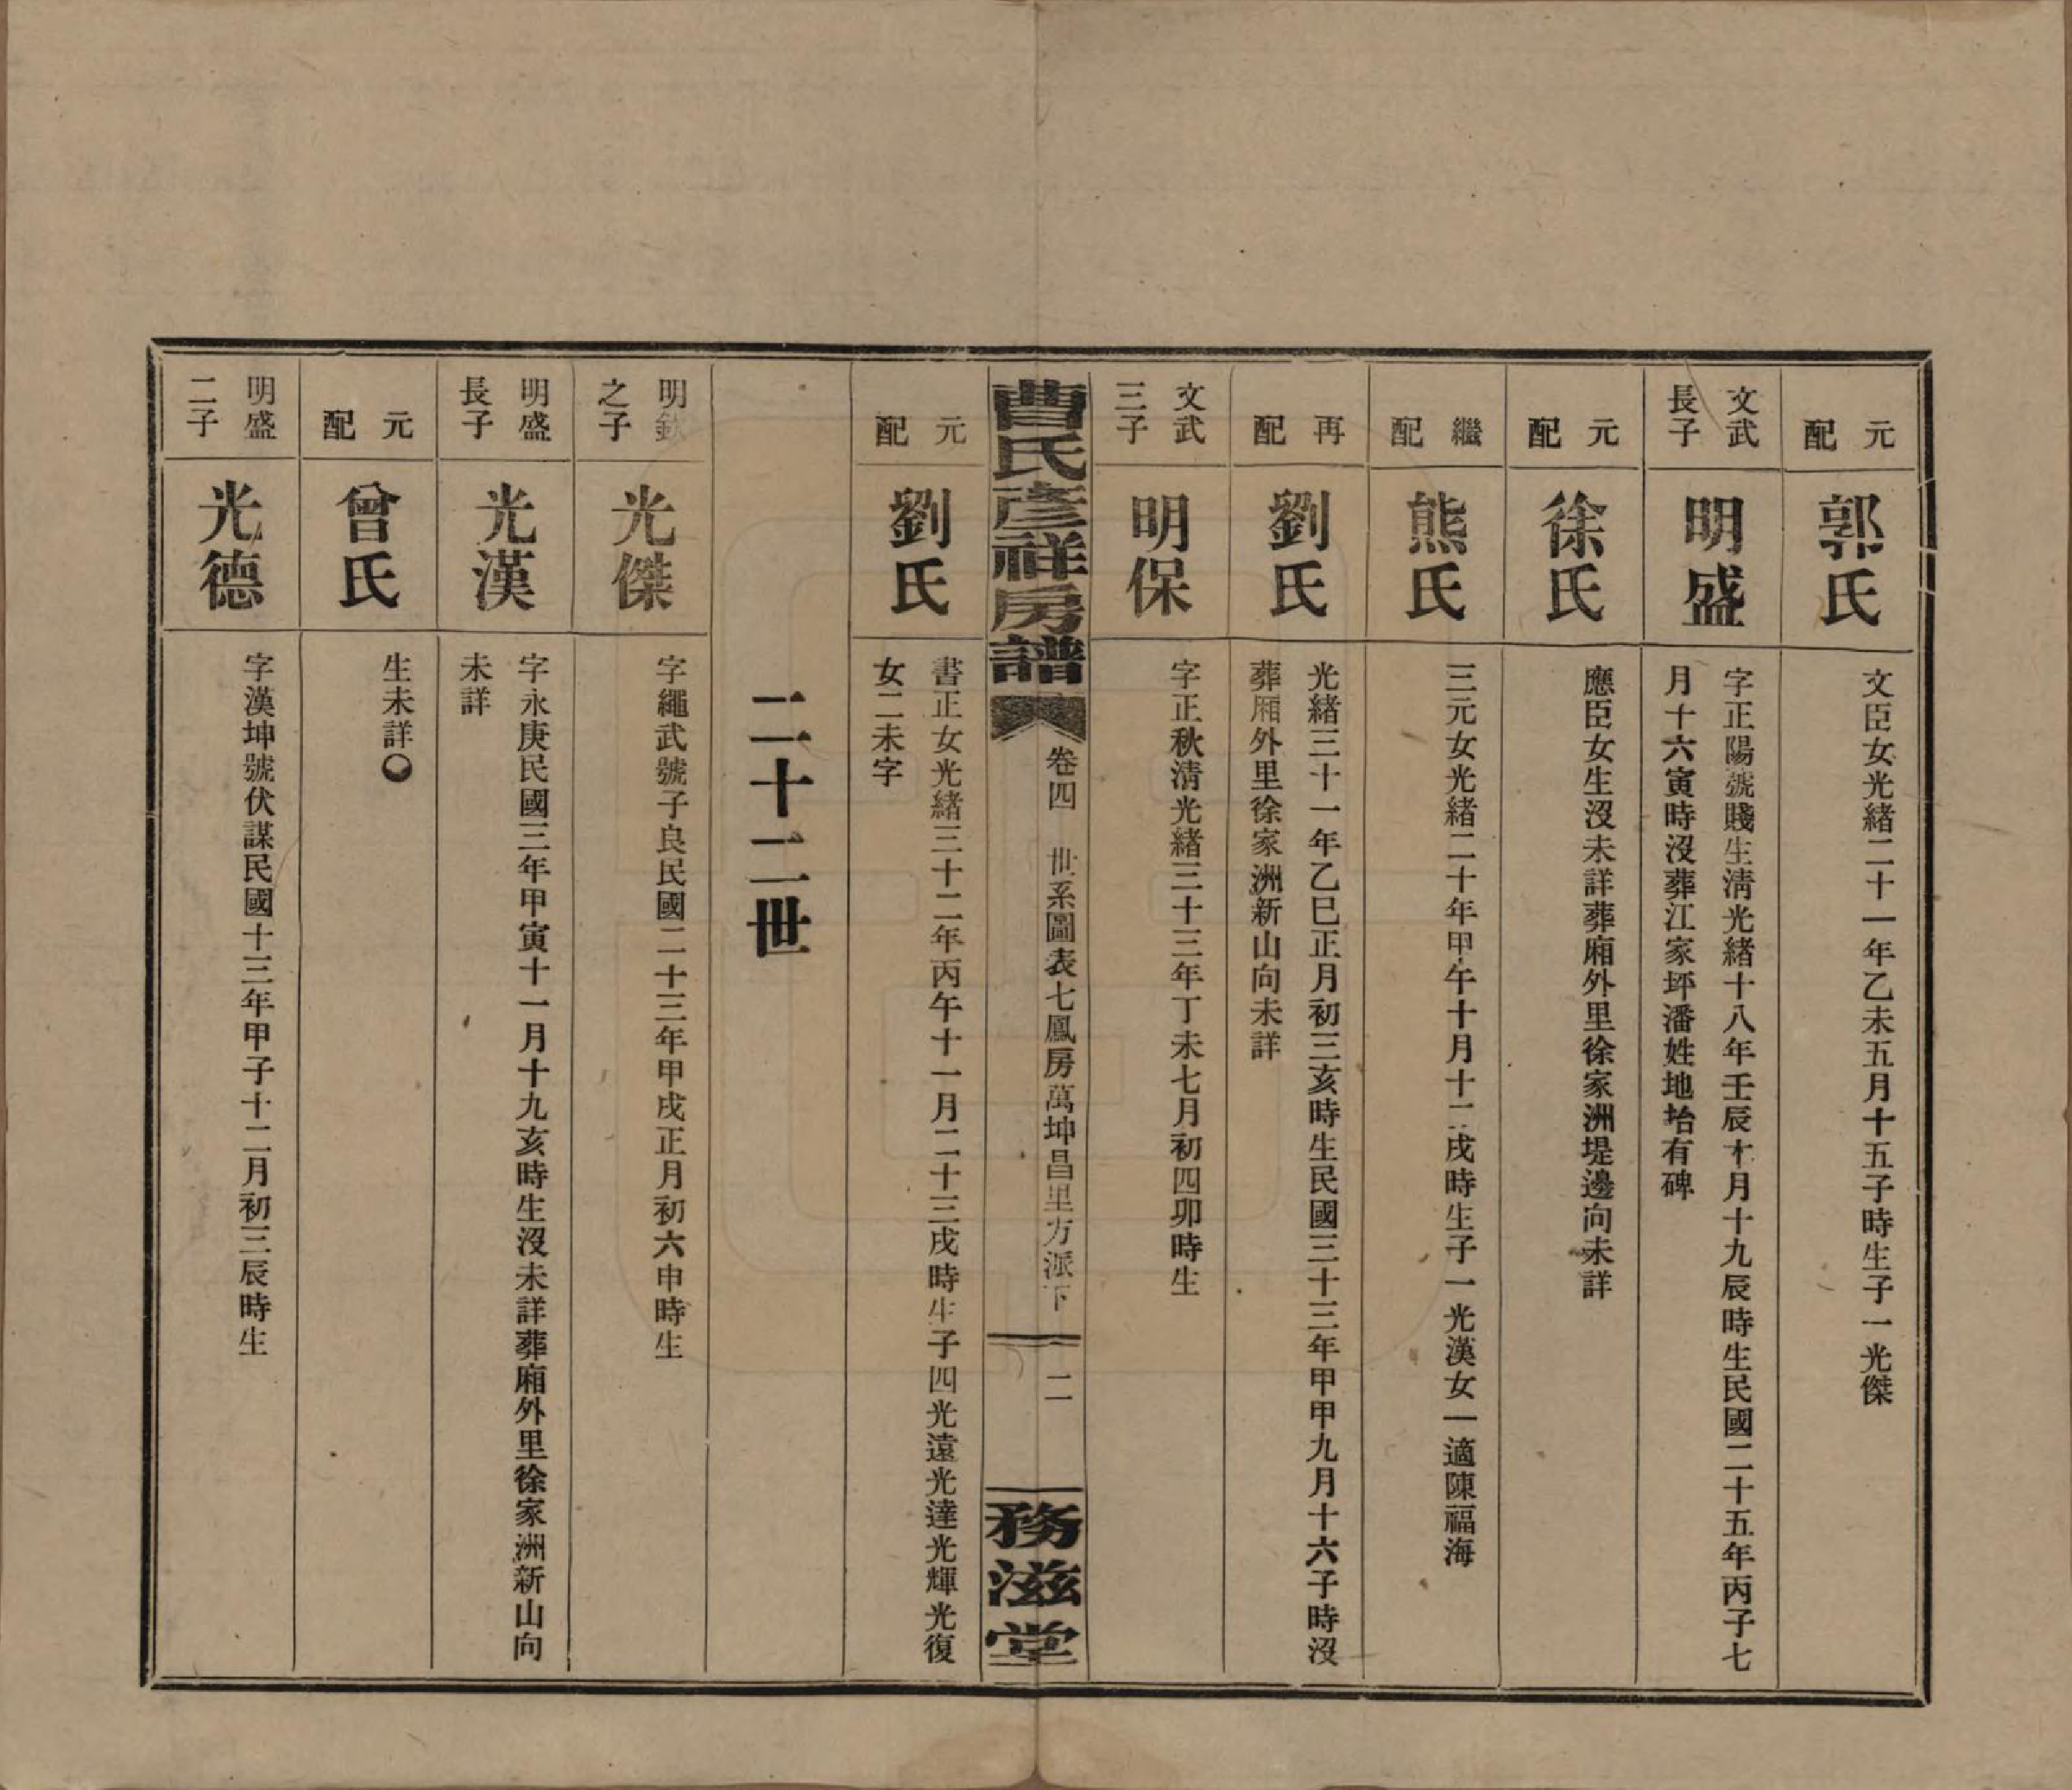 元配
郭氏
文臣女光緒二十一年乙未五月十五子時生子一光傑
文武長子
明盛
字正陽號賤生淸光緒十八年壬辰十月十九辰時生民國二十五年丙子七
月十六寅時沒葬江家坪潘姓地坮有碑
元配
徐氏
應臣女生沒未詳葬廂外里徐家洲堤邊向未詳
繼配
熊氏
三元女光緒二十年甲午十月十二戌時生子一光漢女一適陳福海
再配
劉氏
光緒三十一年乙巳正月初三亥時生民國三十三年甲甲九月十六子時沒
葬廂外里徐家洲新山向未詳
文武三子
明保
字正秋淸光緒三十三年丁未七月初四卯時生
曹氏彦祥房譜
卷四 世系圖表七鳳房萬坤昌里方派下
二
務滋堂
元配
劉氏
書正女光緒三十二年丙午十一月二十三戌時生子四光遠光達光輝光復
女二未字
二十二世
明欽之子
光傑
字繩武號子良民國二十三年甲戌正月初六申時生
明盛長子
光漢
字永庚民國三年甲寅十一月十九亥時生沒未詳葬廂外里徐家洲新山向
未詳
元配
曾氏
生未詳
明盛二子
光德
字漢坤號伏謀民國十三年甲子十二月初三辰時生